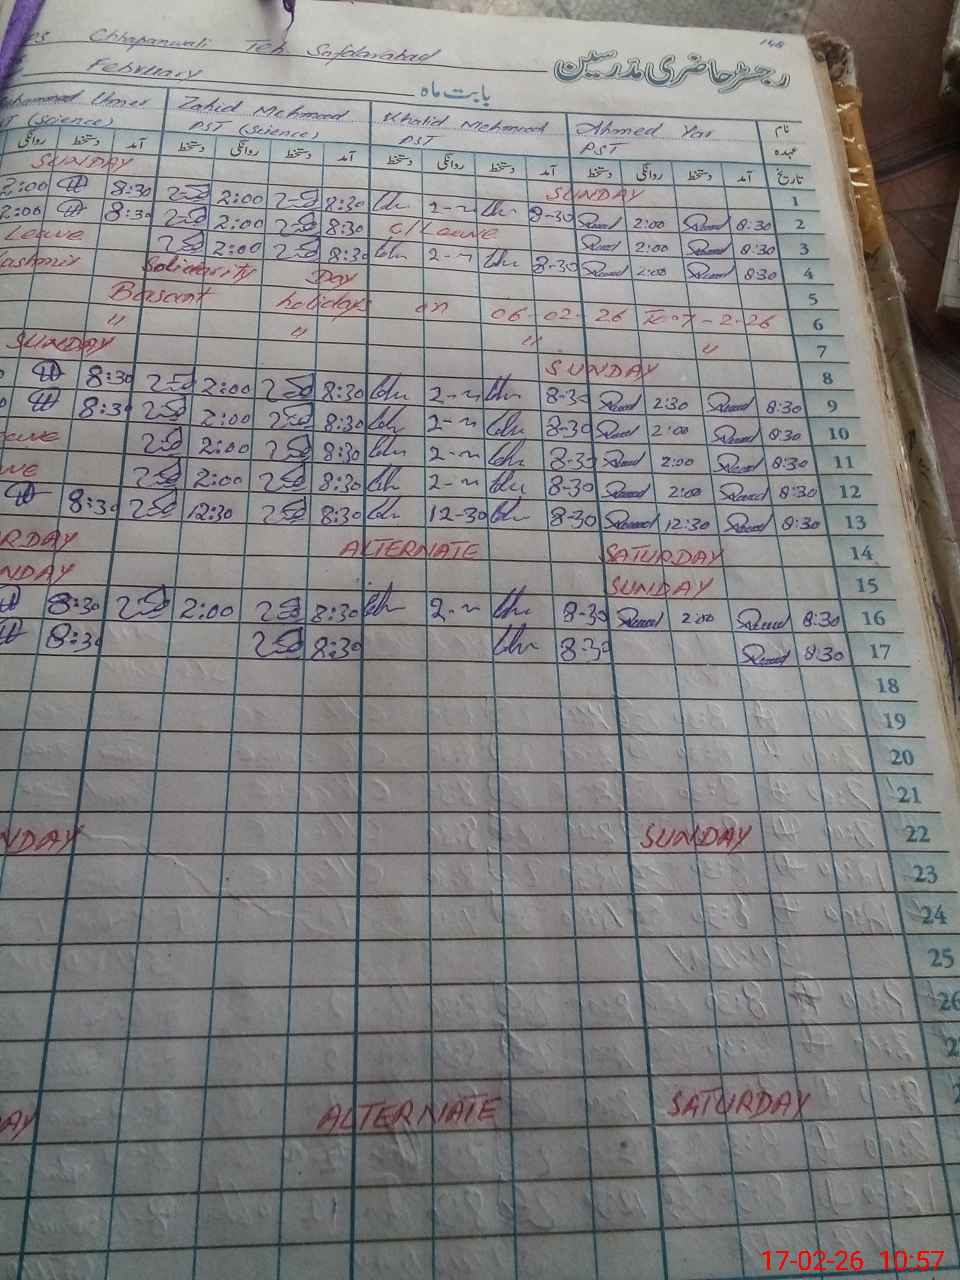 Chhapanwali Teh Safdarabad 148
رجسٹر حاضری مدرسین
February بابت ماہ
Muhammad Umer Zahid Mehmood Khalid Mehmood Ahmed Yar نام
(Science) PST (Science) PST PST عہدہ
روانگی دستخط آمد دستخط روانگی دستخط آمد دستخط روانگی دستخط آمد دستخط روانگی دستخط آمد تاریخ
SUNDAY SUNDAY 1
2:00 8:30 2:00 8:30 8-30 2:00 8:30 2
2:00 8:30 2:00 8:30 C/Leave 2:00 8:30 3
Leave 2:00 8:30 8-30 2:00 8:30 4
Kashmir Solidarity Day 5
Basant holidays on 06-02-26 To 07-2-26 6
" " " " 7
SUNDAY SUNDAY 8
8:30 2:00 8:30 8-30 2:30 8:30 9
8:30 2:00 8:30 8-30 2:00 8:30 10
Leave 2:00 8:30 8-30 2:00 8:30 11
2:00 8:30 8-30 2:00 8:30 12
8:30 12:30 8:30 12-30 8-30 12:30 8:30 13
ALTERNATE SATURDAY 14
SUNDAY 15
8:30 2:00 8:30 8-30 2:00 8:30 16
8:30 8:30 8-30 8:30 17
18
19
20
21
SUNDAY 22
23
24
25
26
ALTERNATE SATURDAY
17-02-26 10:57